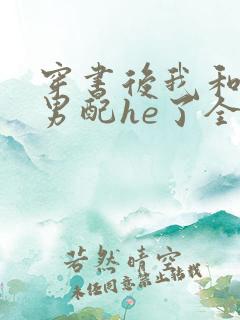 穿书後我和
男配he了全
若然晴空
未经同意禁止转载